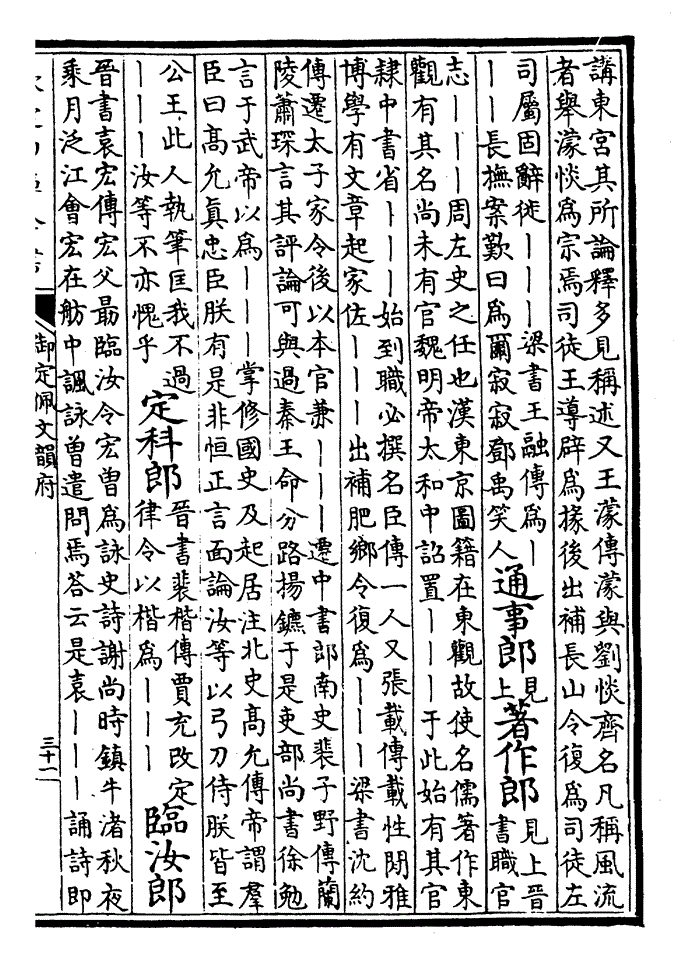 講東宮其所論釋多見稱述又王濛傳濛與劉惔齊名凡稱風流
者舉濛惔爲宗焉司徒王導辟爲掾後出補長山令復爲司徒左
司屬固辭徙｜｜｜梁書王融傳爲｜
｜｜長撫案歎曰爲爾寂寂鄧禹笑人
通事郎
見上
著作郎
見上晉
書職官
志｜｜｜周左史之任也漢東京圖籍在東觀故使名儒著作東
觀有其名尚未有官魏明帝太和中詔置｜｜｜于此始有其官
隸中書省｜｜｜始到職必撰名臣傳一人又張載傳載性閑雅
博學有文章起家佐｜｜｜出補肥鄉令復爲｜｜｜梁書沈約
傳遷太子家令後以本官兼｜｜｜遷中書郎南史裴子野傳蘭
陵蕭琛言其評論可與過秦王命分路揚鑣于是吏部尚書徐勉
言于武帝以爲｜｜｜掌修國史及起居注北史高允傳帝謂羣
臣曰高允眞忠臣朕有是非恒正言面論汝等以弓刀侍朕皆至
公王此人執筆匡我不過
｜｜｜汝等不亦愧乎
定科郎
晉書裴楷傳賈充改定
律令以楷爲｜｜｜
臨汝郎
晉書袁宏傳宏父勗臨汝令宏曾爲詠史詩謝尚時鎮牛渚秋夜
乘月泛江會宏在舫中諷詠曾遣問焉荅云是袁｜｜｜誦詩即
御定佩文韻府
三十一